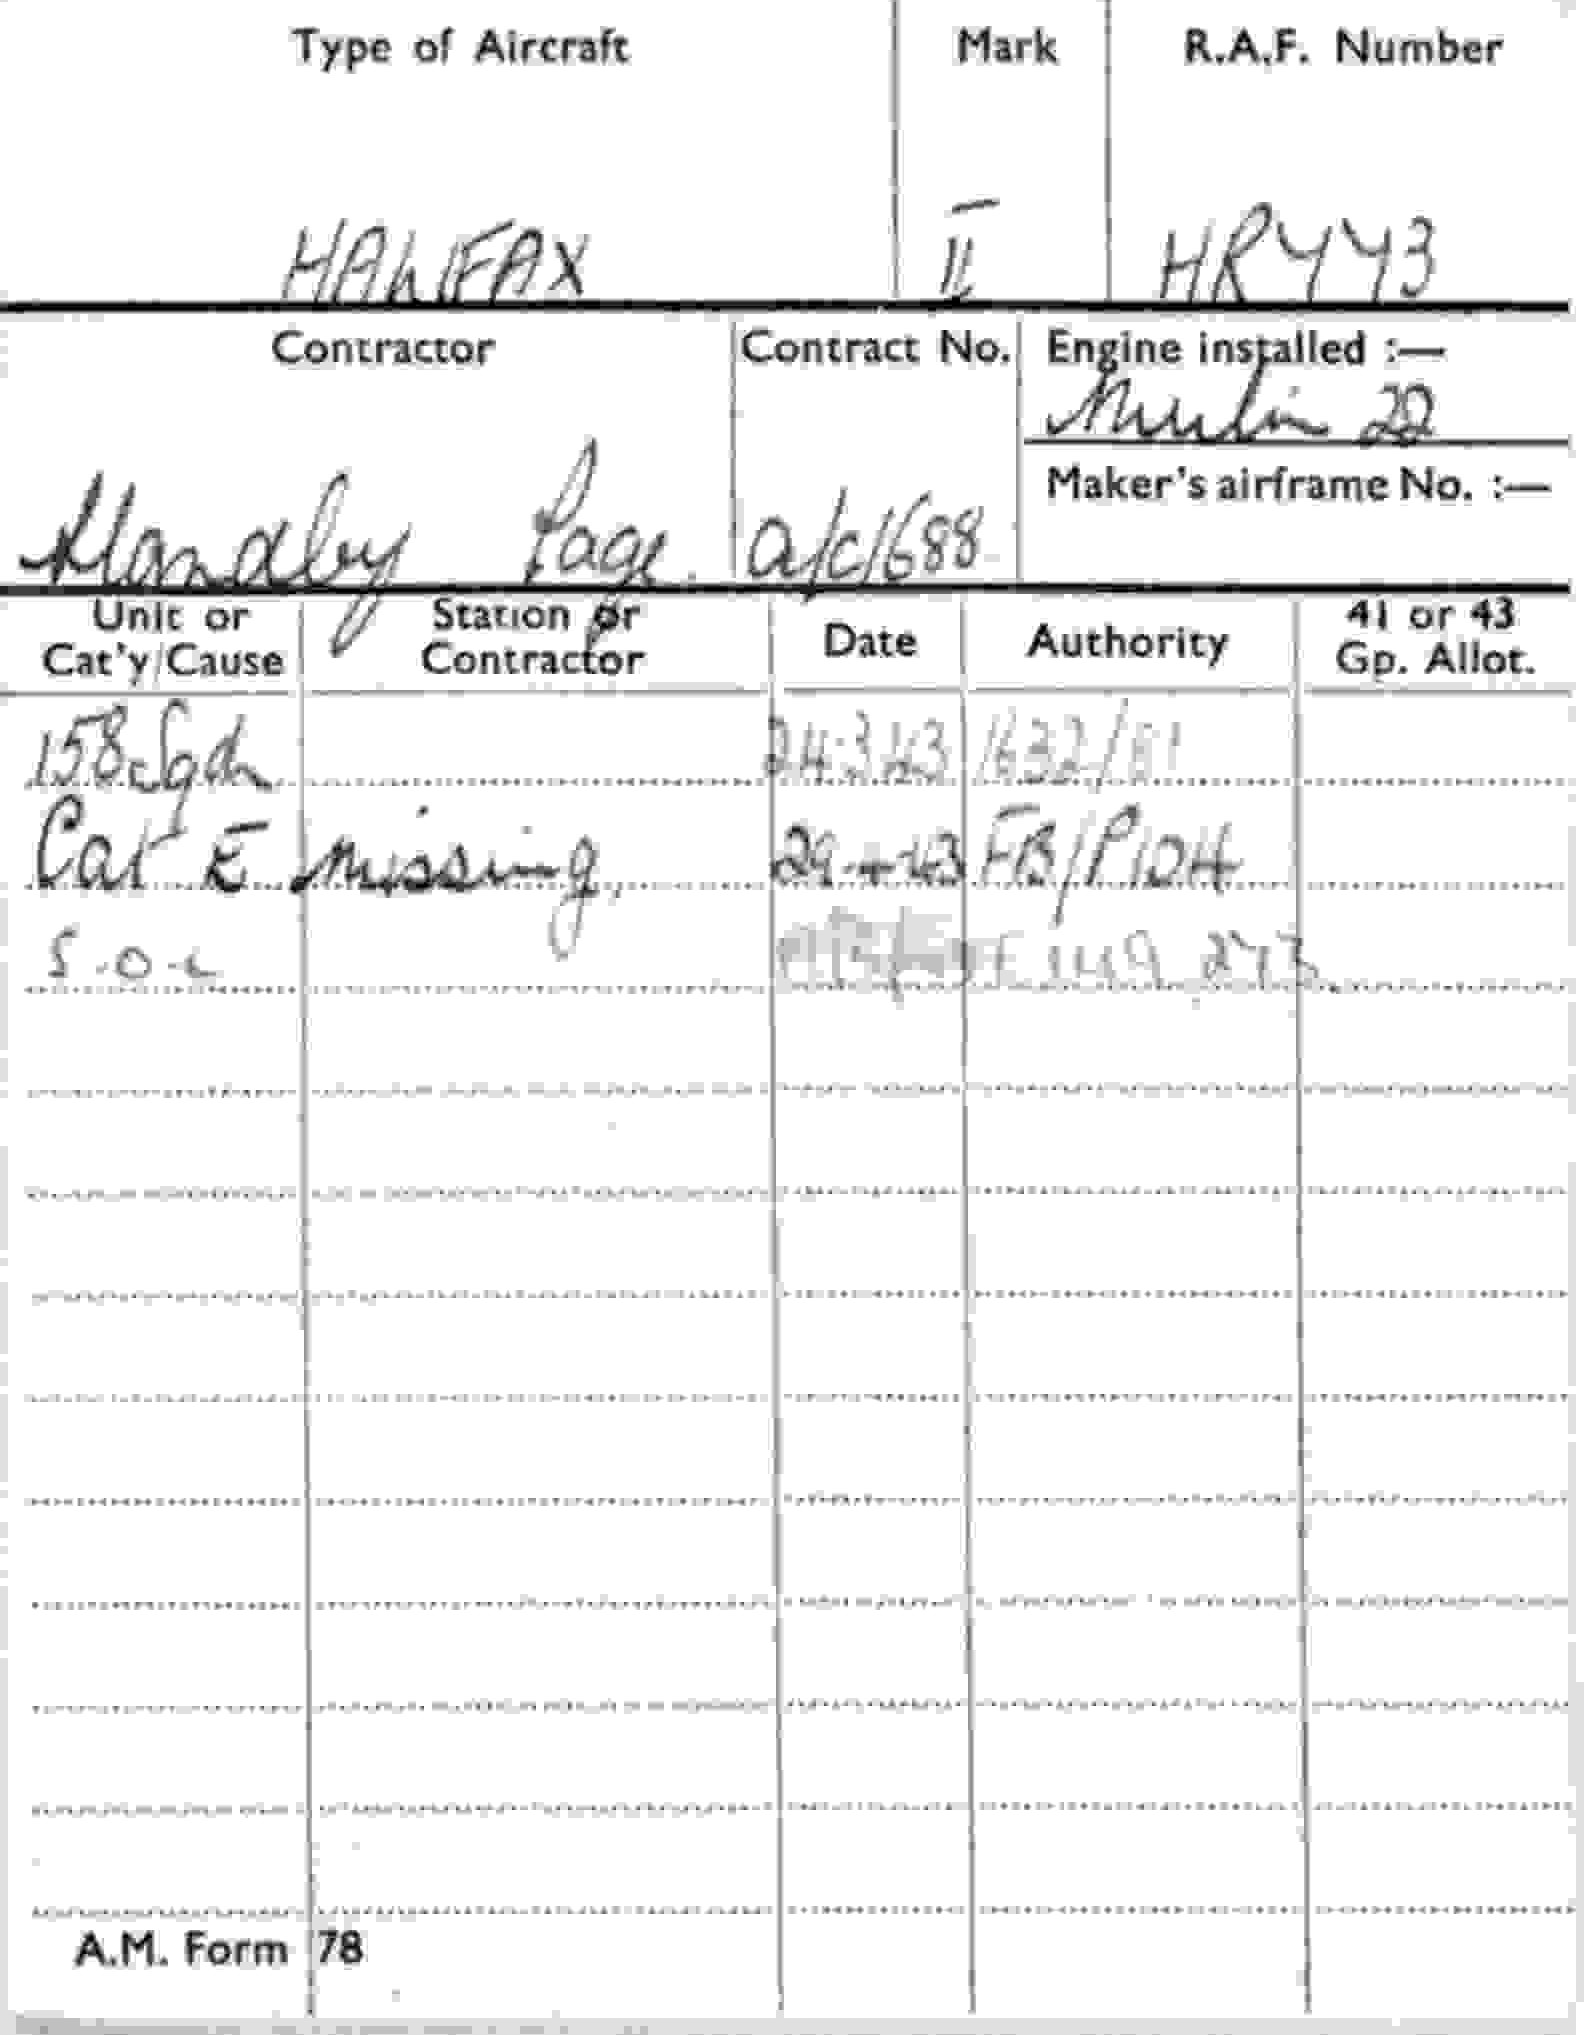 Type of Aircraft Mark R.A.F. Number
HALIFAX II HR773
Contractor Contract No. Engine installed :—
Merlin 22
Maker's airframe No. :—
Handley Page. a/c/1688
Unit or Station or Date Authority 41 or 43
Cat'y/Cause Contractor Gp. Allot.
158 Sqdn 24.3.43
Cat E missing. 29.4.43 FB/P104
S.O.C 273.
A.M. Form 78